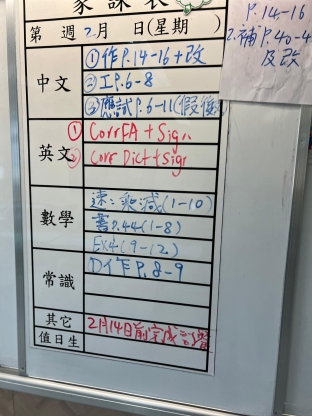 家課表
第 週 2月 日(星期 )
中文
①作P.14-16+改
②工P.6-8
③應試P.6-11(假後)
英文
① Corr FA + Sign
② Corr Dict + Sign
數學
速:乘減(1-10)
書P.44(1-8)
Ex4(9-12)
常識
作P.8-9
其它
2月14日前完成
值日生
P.14-16
2.補P.40-4
及改